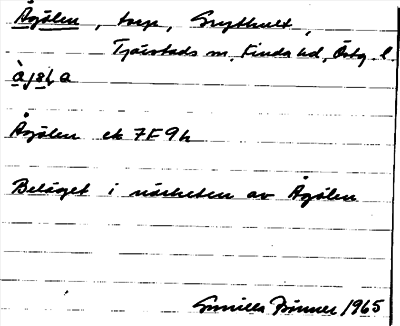 Ågölen, torp, Grythult,
Tjärstads sn, Kinda hd, Östg. l.
Ågölen ek 7F 9h
Beläget i närheten av Ågölen
Gunilla 1965